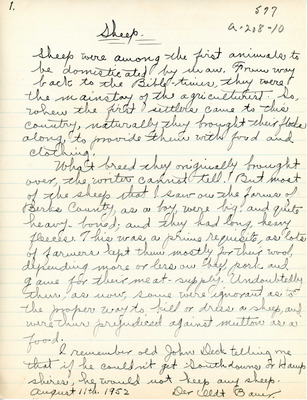 1.
597
a-208-10
Sheep.
Sheep were among the first animals to
be domesticated by man. From way
back to the Bible times, they were
the mainstay of the agriculturist. So,
when the first settlers came to this
country, naturally they brought their flocks
along, to provide them with food and
clothing.
What breed they originally brought
over, the writer cannot tell. But most
of the sheep that I saw on the farms of
Berks County, as a boy, were big, and quite
heavy boned, and they had long, heavy
fleeces. This was a prime requisite, as lots
of farmers kept them mostly for their wool,
depending more or less on beef, pork and
game for their meat supply. Undoubtedly
then, as now, some were ignorant as to
the proper way to kill or dress a sheep, and
were thus prejudiced against mutton as a
food.
I remember old John Deck telling me
that if he couldn't get Southdowns or Hamp
shires, he would not keep any sheep.
August 11th 1952 Der Oldt Bauer